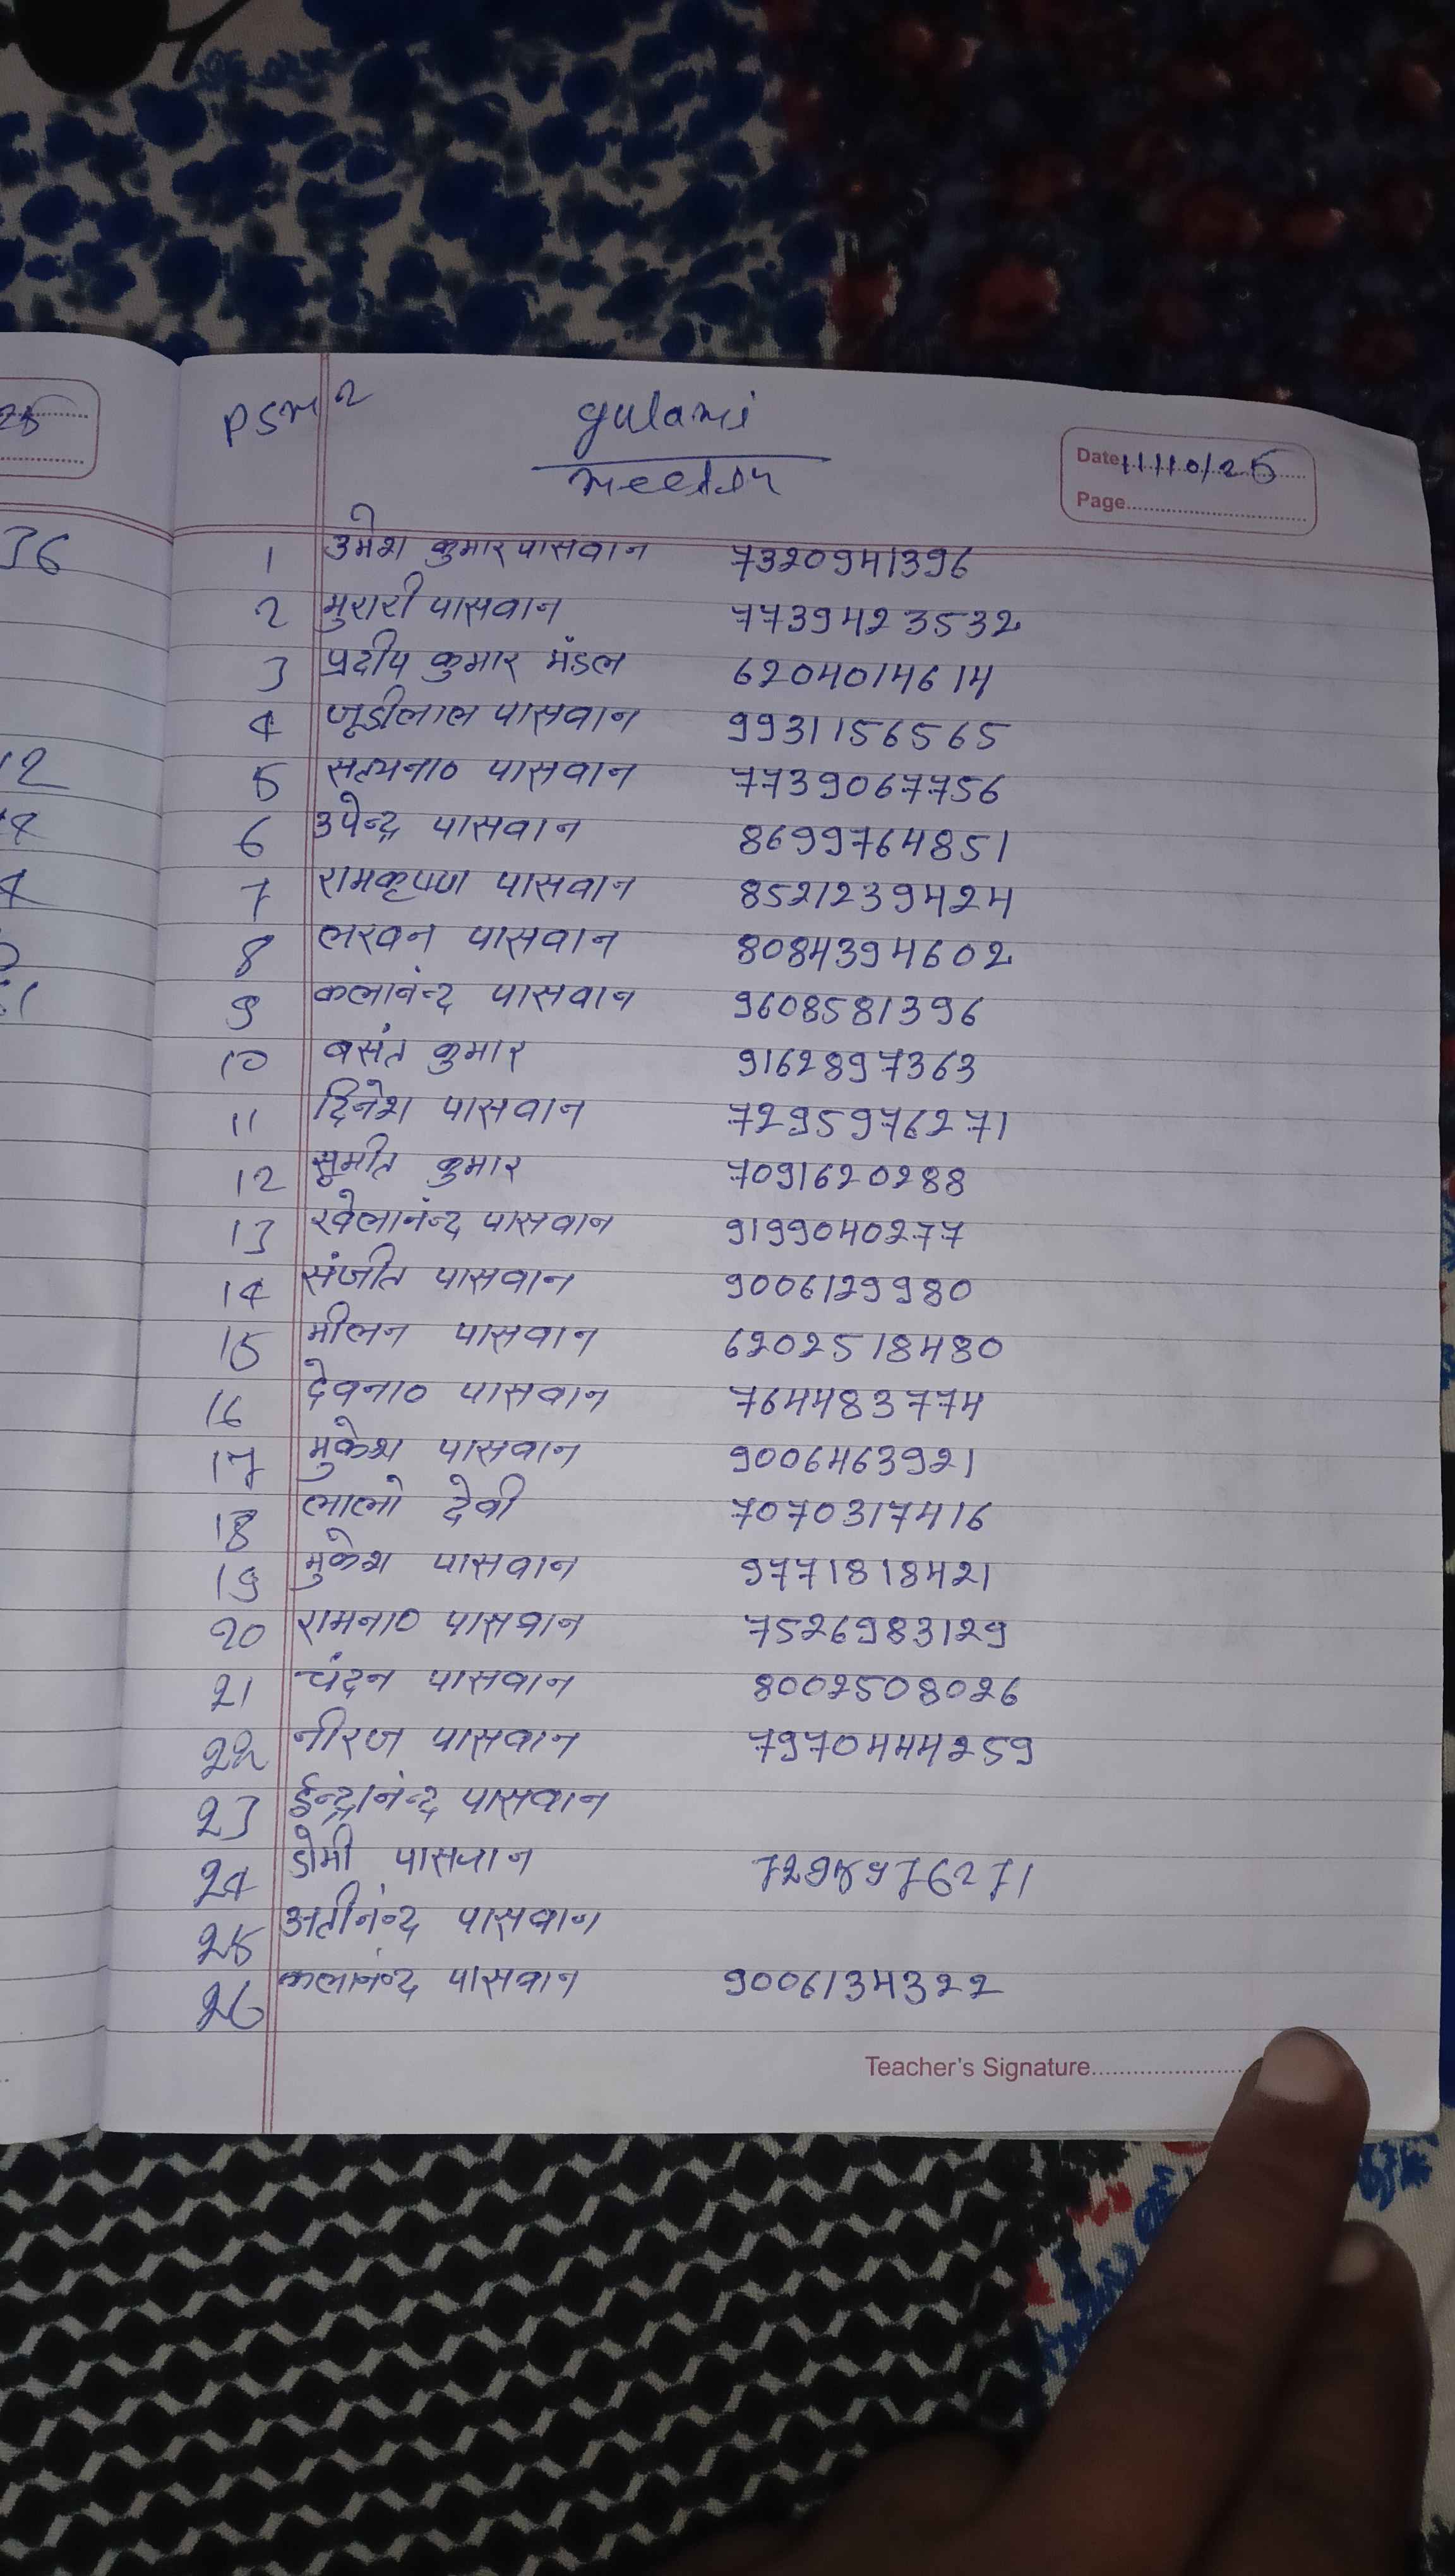 PSM 2
gulami
meetin
Date 11/10/25
Page
1 उमेश कुमार पासवान 7320941396
2 मुरारी पासवान 7739423532
3 प्रदीप कुमार मंडल 6204014614
4 जूडीलाल पासवान 9931156565
5 सत्यना० पासवान 7739067756
6 उपेन्द्र पासवान 8699764851
7 रामकृष्ण पासवान 8521239424
8 लखन पासवान 8084394602
9 कलानंन्द पासवान 9608581396
10 बसंत कुमार 9162897363
11 दिनेश पासवान 7295976271
12 सुमीत कुमार 7091620288
13 खेलानंन्द पासवान 9199040277
14 संजीत पासवान 9006129980
15 मीलन पासवान 6202518480
16 देवना० पासवान 764483774
17 मुकेश पासवान 9006463921
18 लालो देवी 7070317416
19 मुकेश पासवान 9771818421
20 रामना० पासवान 7526983129
21 चंदन पासवान 8002508026
22 नीरज पासवान 7970444259
23 ईन्द्रानंन्द पासवान
24 डोमी पासवान
25 अतीनंन्द पासवान
26 कलानंन्द पासवान 9006134322
Teacher's Signature